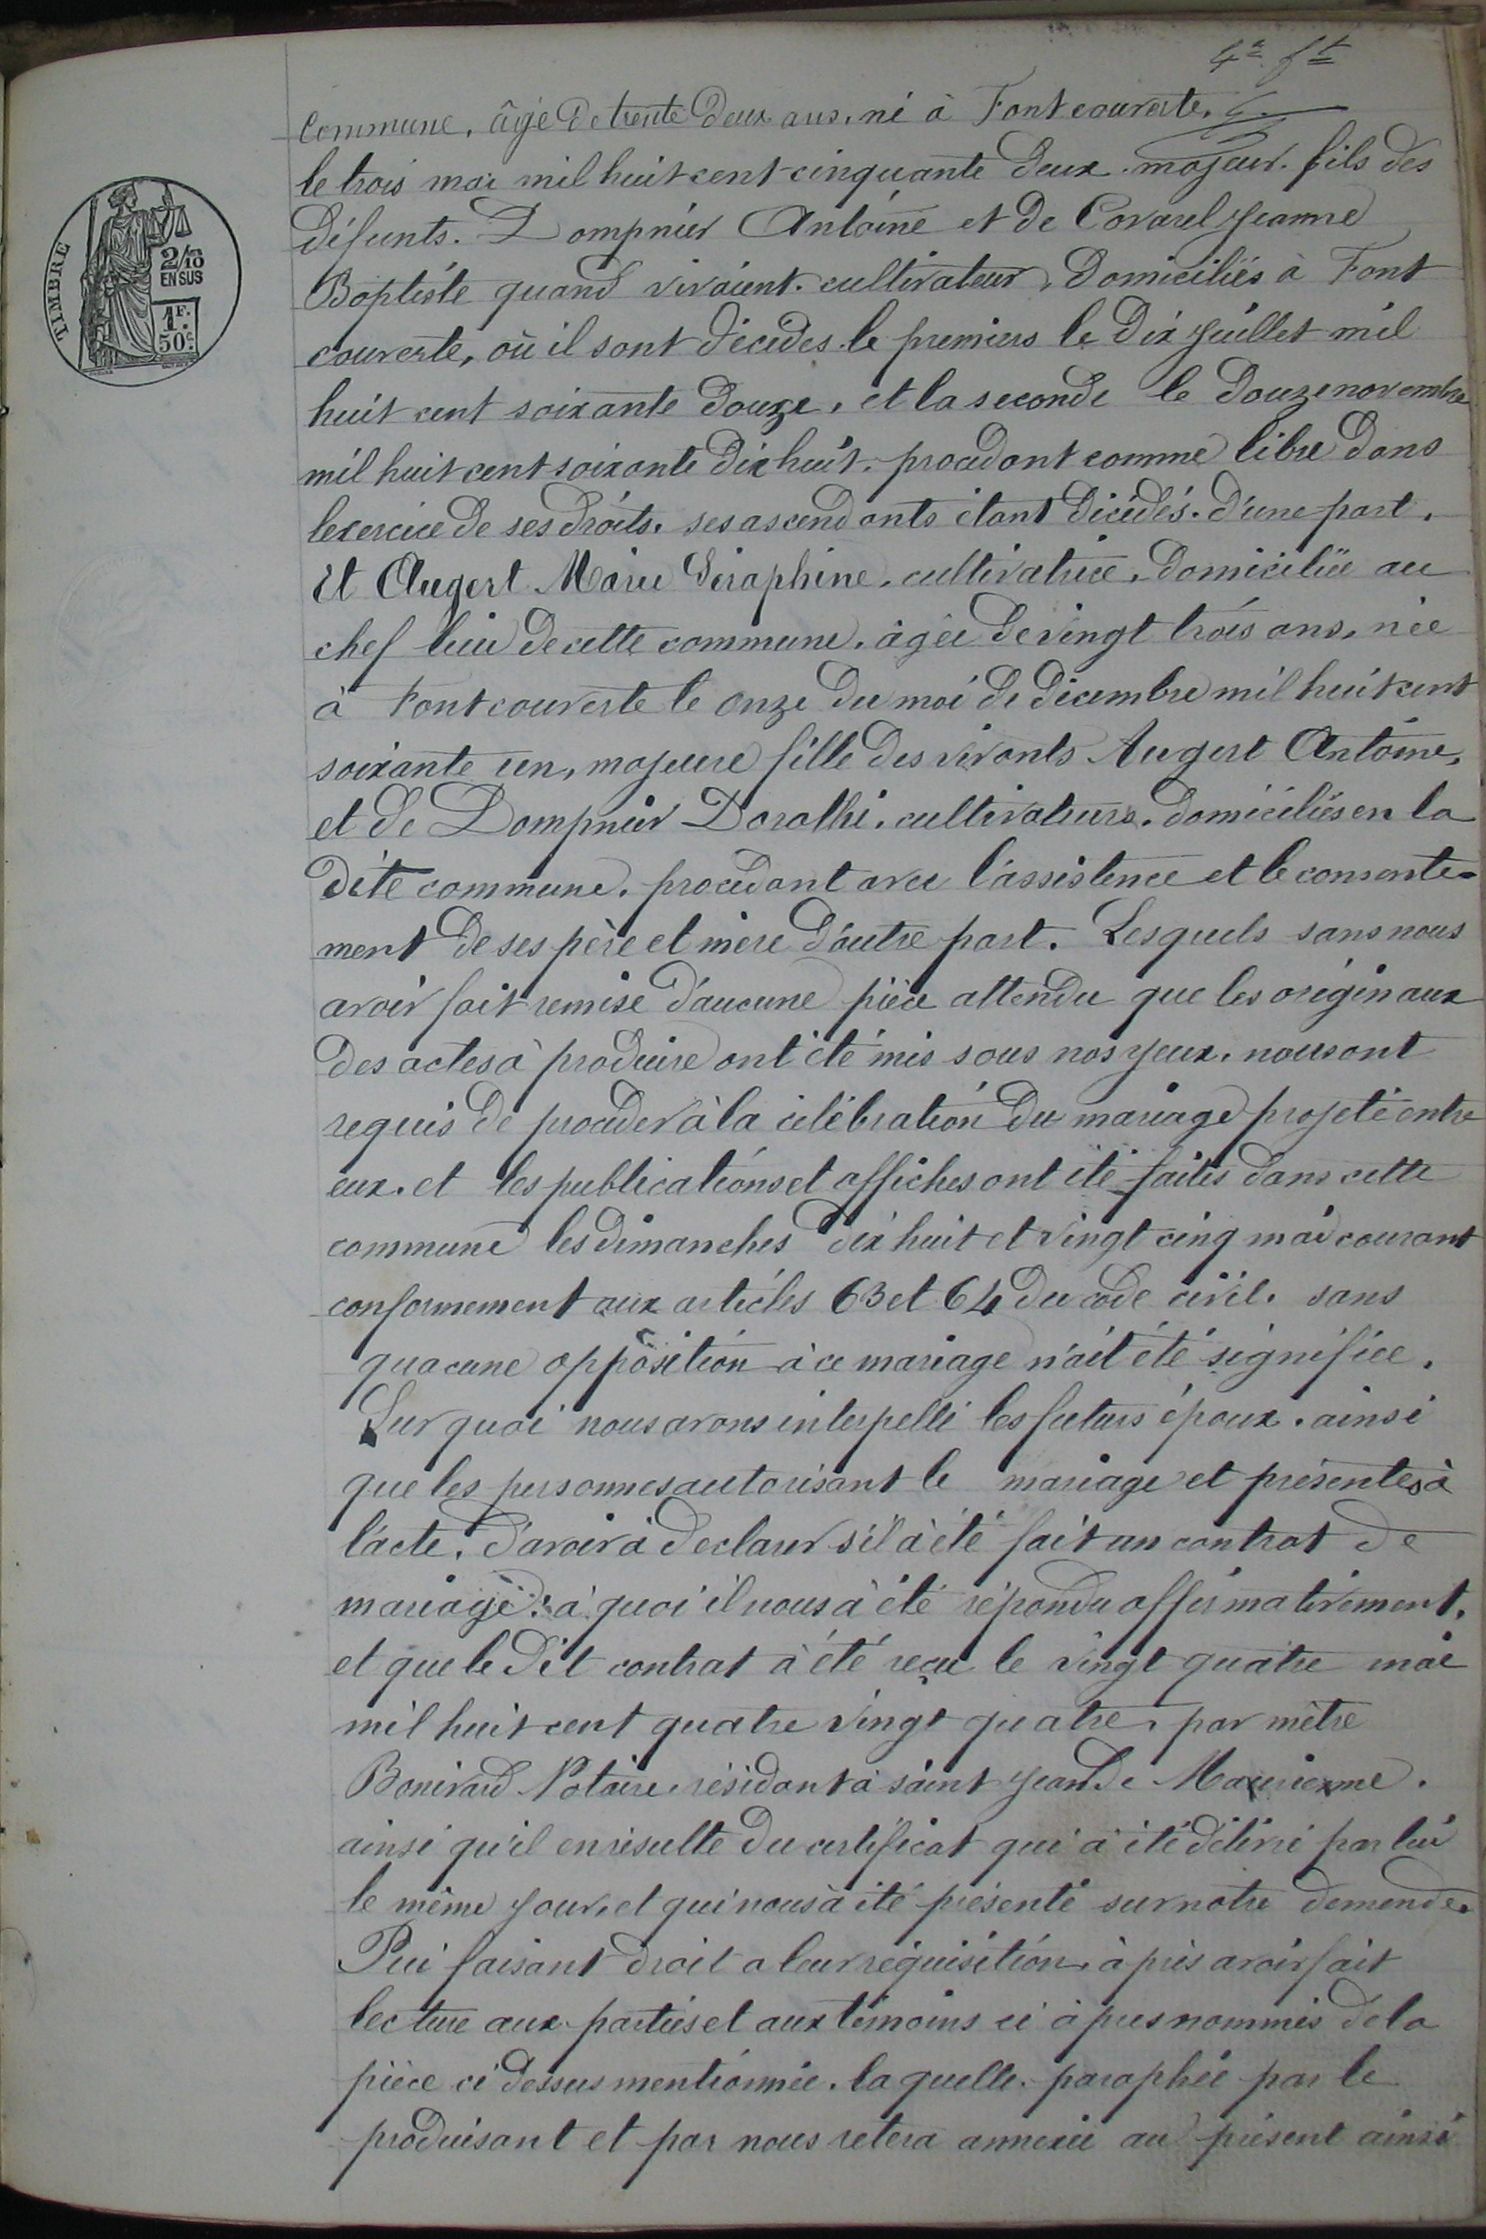 4e ft
commune, âgé de trente deux ans, né à Fontcouverte,
le trois mai mil huit cent cinquante deux. majeur. fils des
défunts. Dompnier Antoine et de Covarel Jeanne
Baptiste quand vivaient. cultivateur, domiciliés à Font
couverte, où il sont décédés le premiers le dix juillet mil
huit cent soixante douze, et la seconde le douze novembre
mil huit cent soixante dix huit. procédant comme libre dans
lexercice de ses droits. ses ascendants étant décédés. d'une part.
Et Augert Marie Séraphine, cultivatrice, domiciliée au
chef lieu de cette commune, âgée de vingt trois ans, née
à Fontcouverte le onze du moi de décembre mil huit cent
soixante un, majeure fille des vivants Augert Antoine,
et de Dompnier Dorothé, cultivateurs. domiciliés en la
dite commune. procédant avec l'assistence et le consente-
ment de ses père et mère d'autre part. Lesquels sans nous
avoir fait remise d'aucune pièce attendu que les originaux
des actes à produire ont été mis sous nos yeux. nous ont
requis de procéder à la célébration du mariage projeté entre
eux. et les publications et affiches ont été faites dans cette
commune les dimanches dix huit et vingt cinq mai courant
conformement aux articles 63 et 64 du code civil. sans
quacune oppôsition à ce mariage n'ait été signifiée.
Sur quoi nous avons interpellé les futurs époux. ainsi
que les personnes autorisant le mariage et présentes à
l'acte. d'avoir à declarer s'il à été fait un contrat de
mariage: à quoi il nous à été répondu affirmativement,
et que le dit contrat à été reçu le vingt quatre mai
mil huit cent quatre vingt quatre, par mètre
Bonivard Notaire résidant à saint Jean de Maurienne.
ainsi qu'il en résulte du certificat qui à été délivré par lui
le même jour, et qui nous à été présenté sur notre demende.
Pui faisant droit a leur réquisition, à près avoir fait
lecture aux parties et aux témoins ci à près nommés de la
pièce ci dessus mentionnée. laquelle. paraphée par le
produisant et par nous retera annexée au présent ainsi
TIMBRE
2/10
EN SUS
1F.
50c.